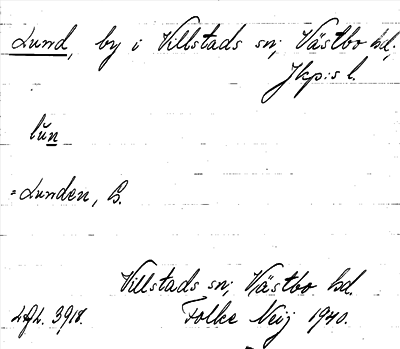 Lund, by i Villstads sn; Västbo hd;
Jkp:s l.
lŭn
=Lunden, B.
Villstads sn; Västbo hd.
3918. Folke 1940.